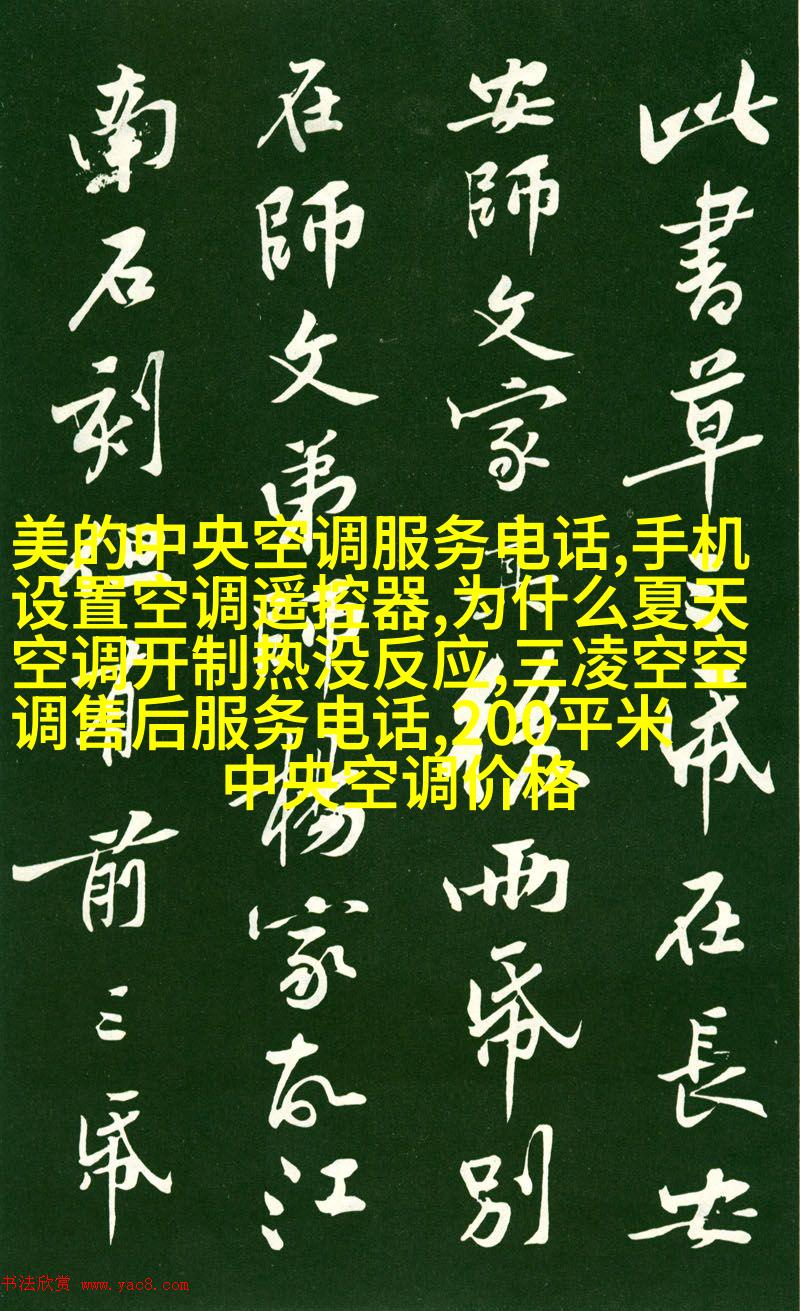 此書草三帋在長安
安師文家其後兩帋別
在師文弟師楊家故江
南石刻但有前三帋
美的中央空调服务电话,手机
设置空调遥控器,为什么夏天
空调开制热没反应,三凌空空
调售后服务电话,200平米
中央空调价格
书法欣赏 www.yac8.com